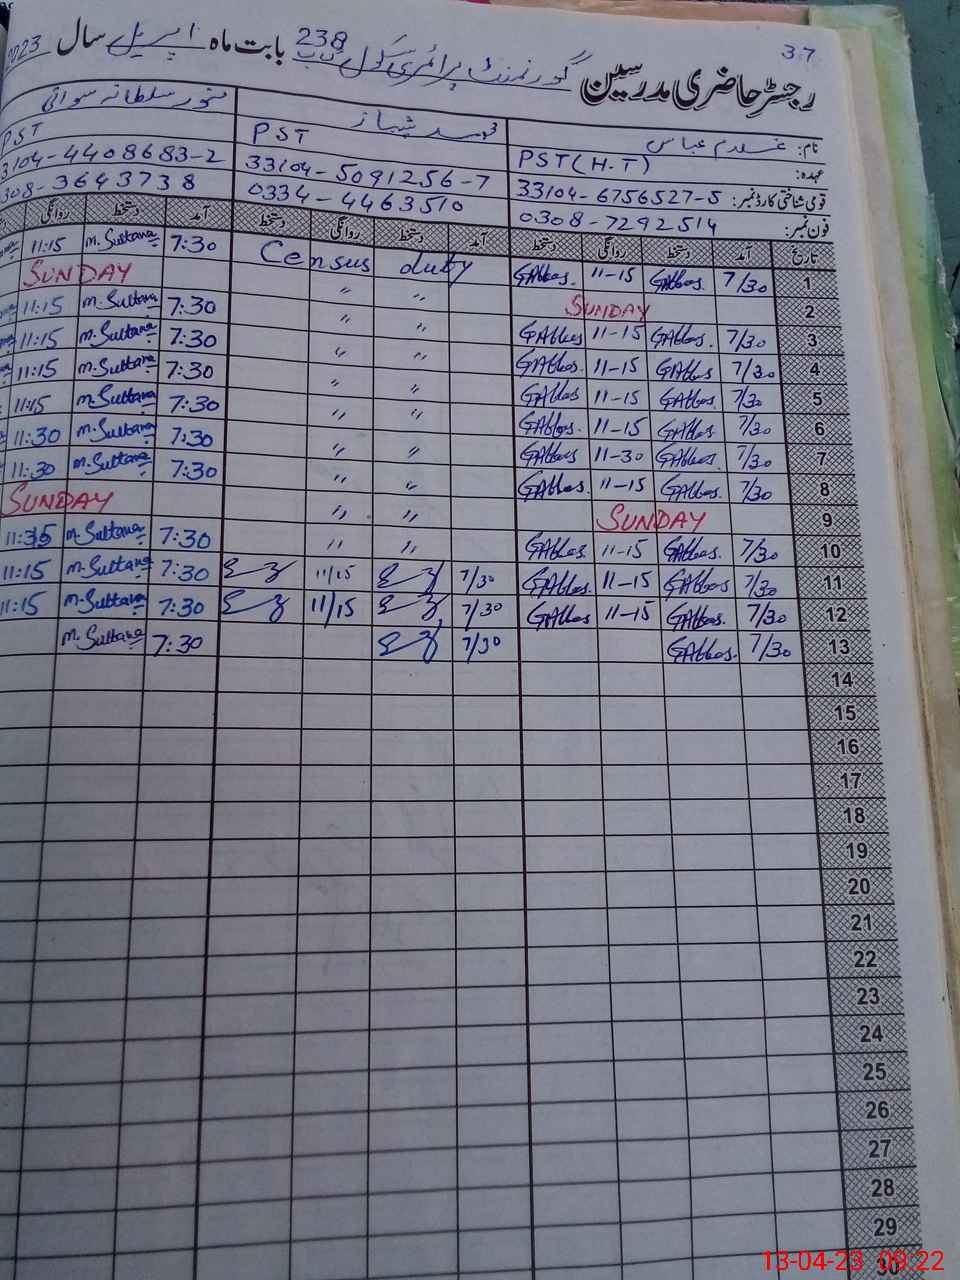 37
رجسٹر حاضری مدرسین گورنمنٹ پرائمری سکول 238 گ ب بابت ماہ اپریل سال 2023
نام: غلام عباس
عہدہ: PST (H.T)
قومی شناختی کارڈ نمبر: 33104-6756527-5
فون نمبر: 0308-7292514
PST
33104-5091256-7
0334-4463510
PST
3104-4408683-2
308-3643738
تاریخ آمد دستخط روانگی دستخط آمد دستخط روانگی دستخط آمد دستخط روانگی
1 7/30 GAbbas. 11-15 GAbbas. Census duty 7:30 M.Sultana 11:15
2 SUNDAY " " SUNDAY
3 7/30 GAbbas. 11-15 GAbbas " " 7:30 M.Sultana 11:15
4 7/30 GAbbas 11-15 GAbbas. " " 7:30 M.Sultana 11:15
5 7/30 GAbbas. 11-15 GAbbas " " 7:30 M.Sultana 11:15
6 7/30 GAbbas 11-15 GAbbas. " " 7:30 M.Sultana 11:15
7 7/30 GAbbas. 11-30 GAbbas " " 7:30 M.Sultana 11:30
8 7/30 GAbbas. 11-15 GAbbas. " " 7:30 M.Sultana 11:30
9 SUNDAY " " SUNDAY
10 7/30 GAbbas. 11-15 GAbbas. " " 7:30 M.Sultana 11:35
11 7/30 GAbbas. 11-15 GAbbas. 7/30 11/15 7:30 M.Sultana 11:15
12 7/30 GAbbas. 11-15 GAbbas 7/30 11/15 7:30 M.Sultana 11:15
13 7/30 GAbbas. 7/30 7:30 M.Sultana
14
15
16
17
18
19
20
21
22
23
24
25
26
27
28
29
30
13-04-23 09:22